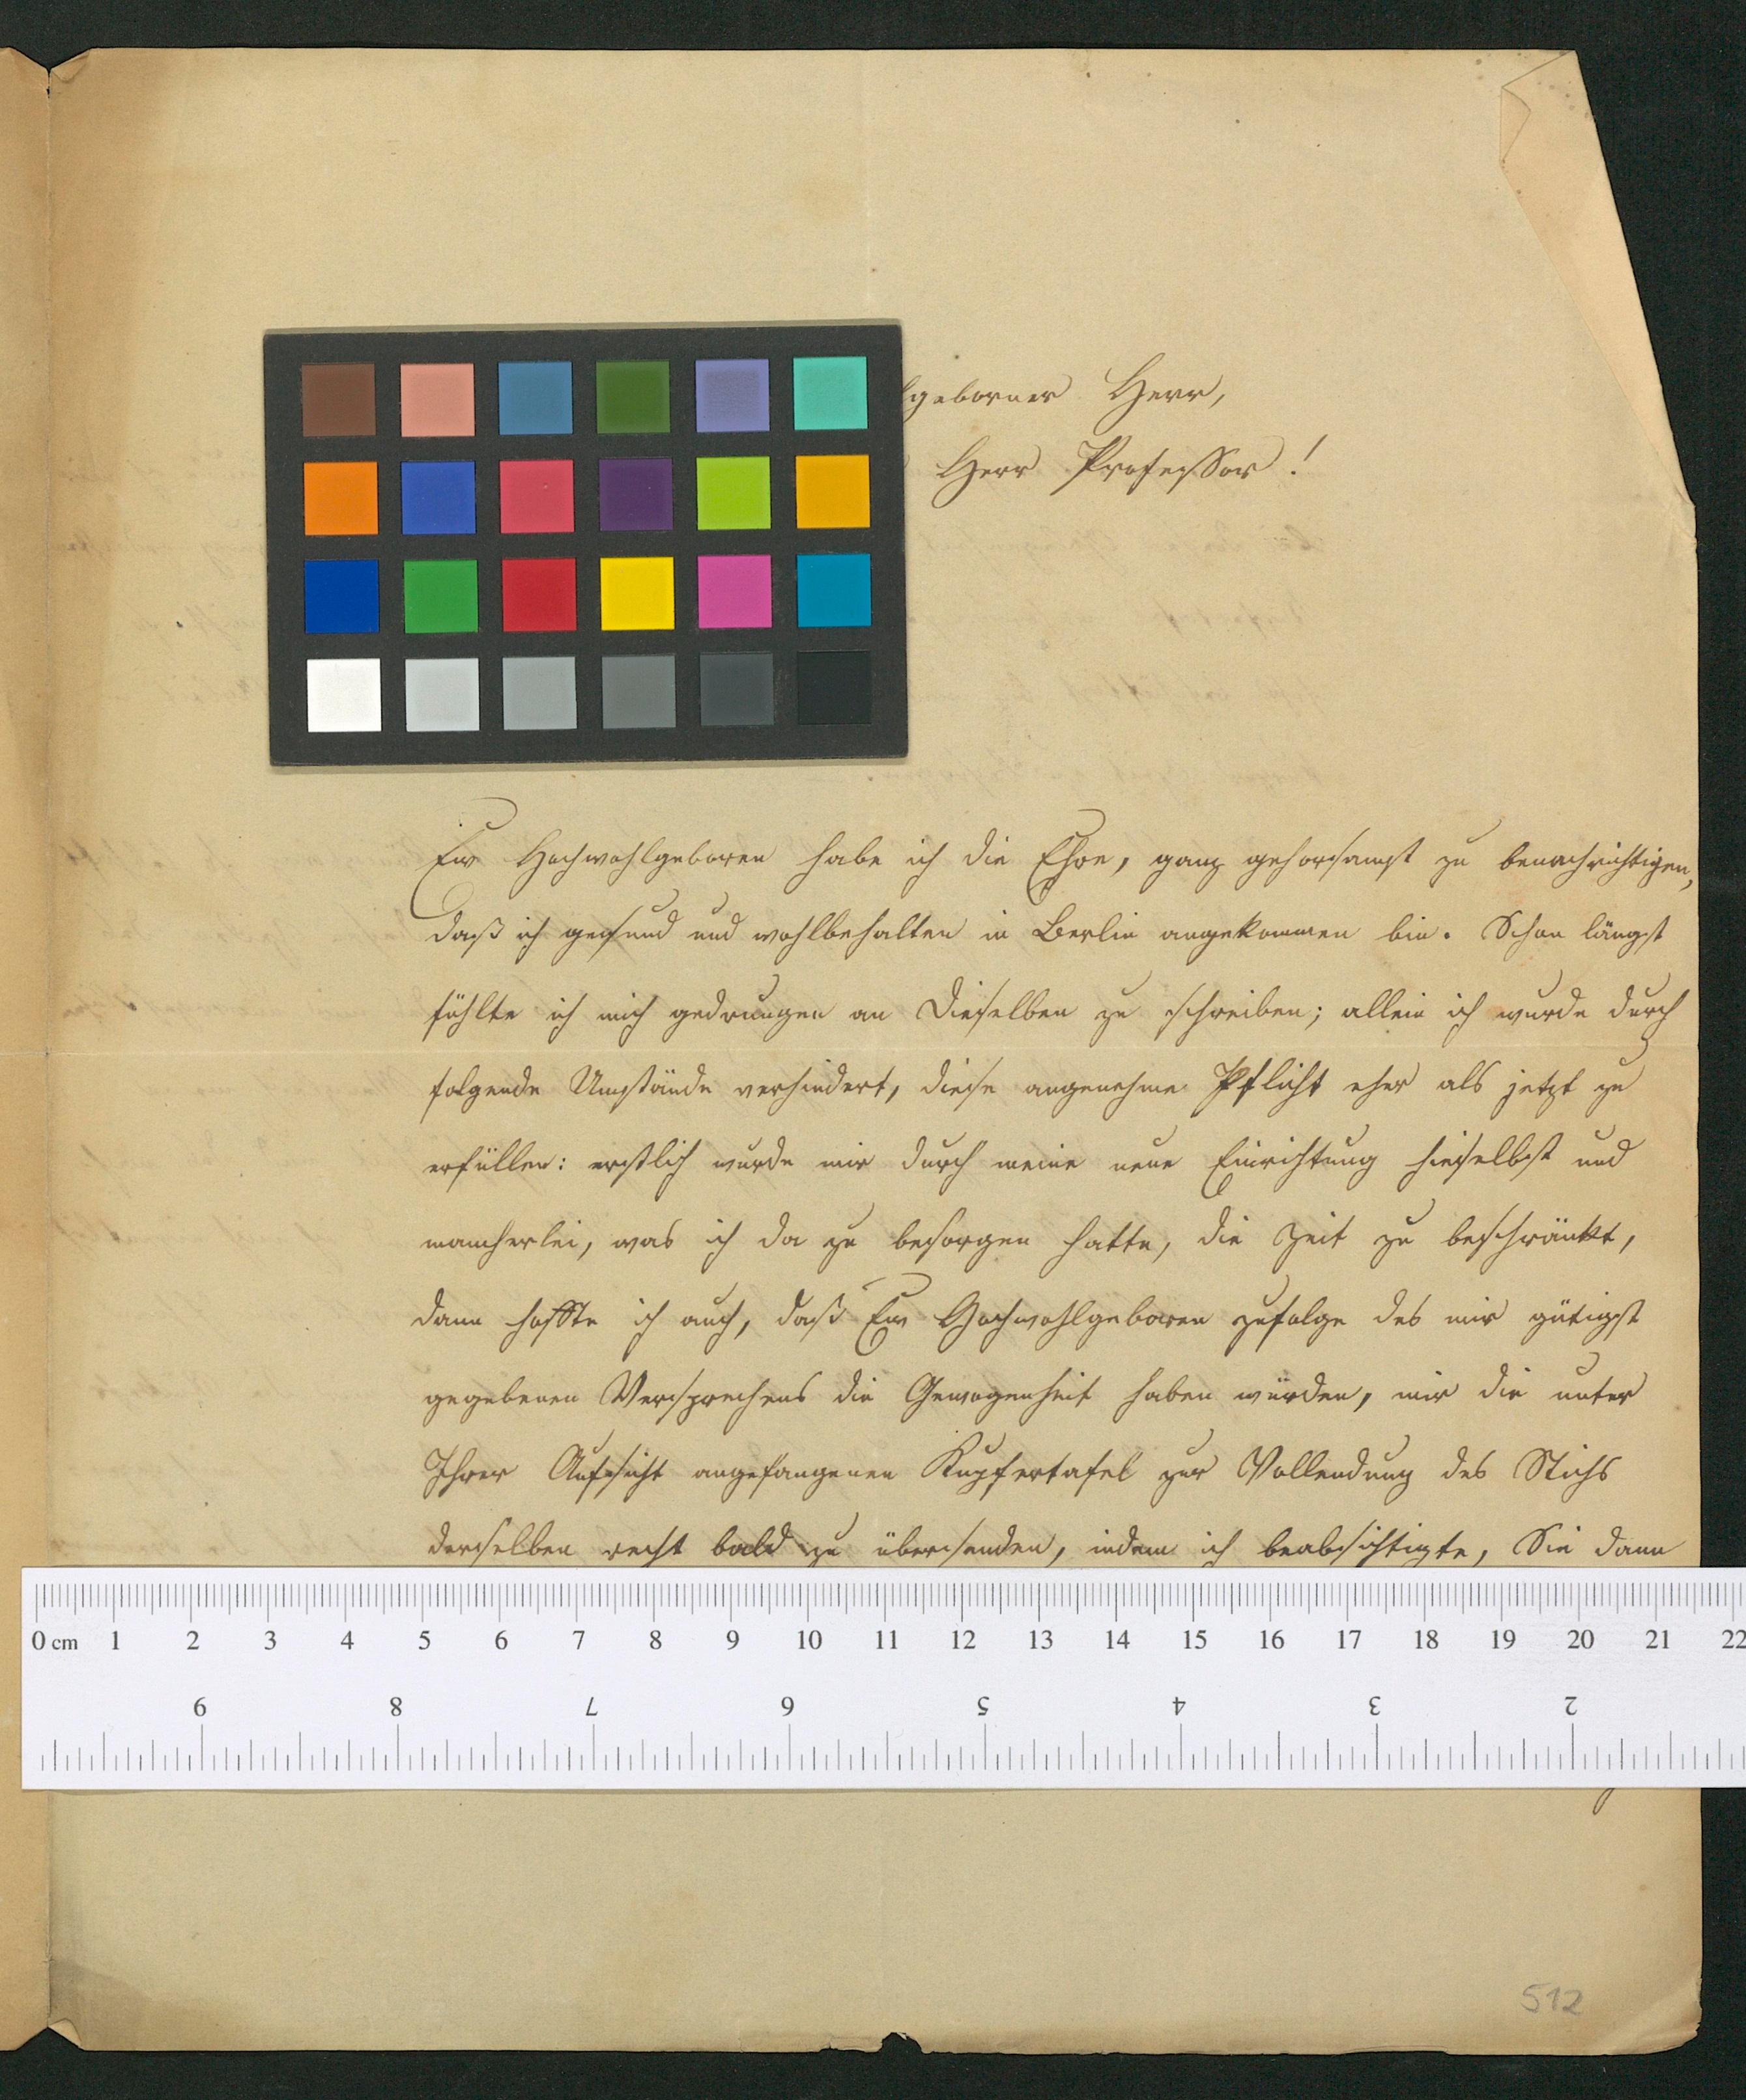 geborner Herr,
Herr Professor!
Ew Hochwohlgeboren habe ich die Ehre, ganz gehorsamst zu benachrichtigen,
daß ich gesund und wohlbehalten in Berlin angekommen bin. Schon längst
fühlte ich mich gedrungen an Dieselben zu schreiben; allein ich wurde durch
folgende Umstände verhindert, diese angenehme Pflicht eher als jetzt zu
erfüllen: erstlich wurde mir durch meine neue Einrichtung hieselbst und
mancherlei, was ich da zu besorgen hatte, die Zeit zu beschränkt,
dann hoffte ich auch, daß Ew Hochwohlgeboren zufolge des mir gütigst
gegebenen Versprechens die Gewogenheit haben würden, mir die unter
Ihrer Aufsicht angefangenen Kupfertafel zur Vollendung des Stichs
derselben recht bald zu übersenden, indem ich beabsichtigte, Sie dann
0 cm 1 2 3 4 5 6 7 8 9 10 11 12 13 14 15 16 17 18 19 20 21 22
9 8 7 6 5 4 3 2
512